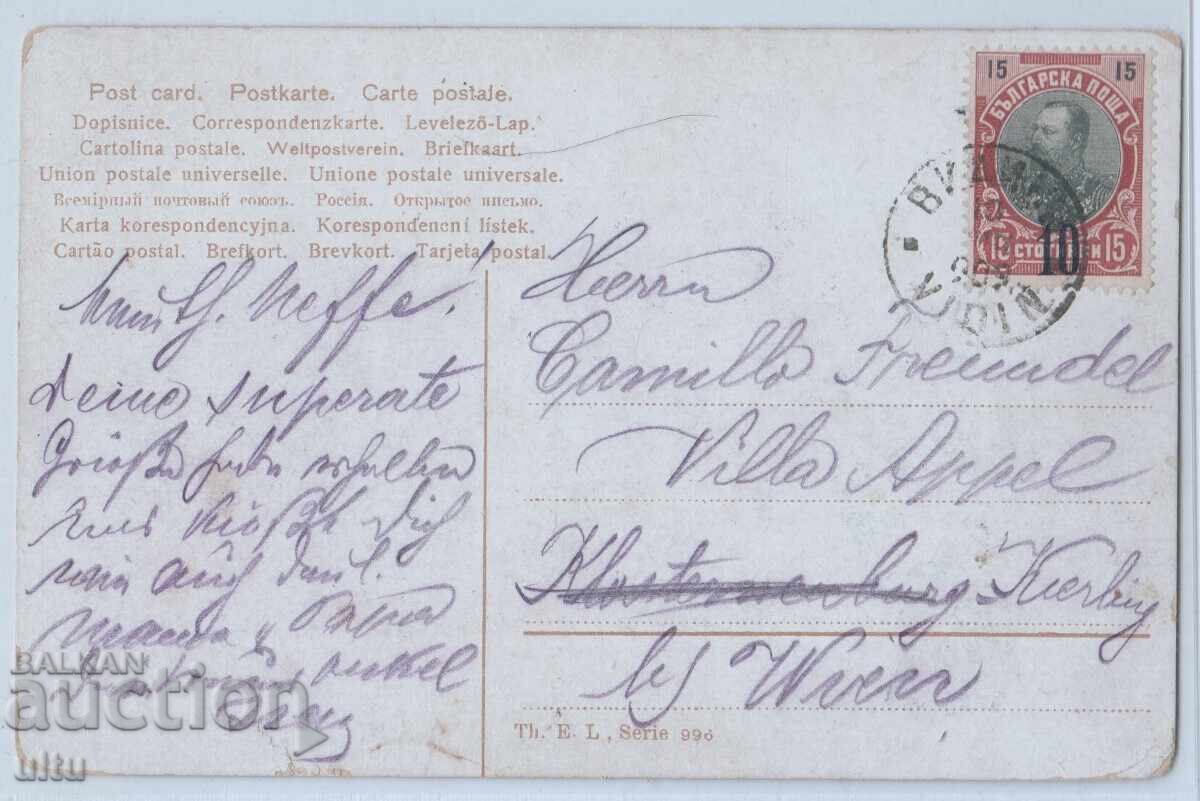 Post card. Postkarte. Carte postale.
Dopisnice. Correspondenzkarte. Levelező-Lap.
Cartolina postale. Weltpostverein. Briefkaart.
Union postale universelle. Unione postale universale.
Всемірный почтовый союзъ. Россія. Открытое письмо.
Karta korespondencyjna. Korespondenční lístek.
Cartão postal. Brefkort. Brevkort. Tarjeta postal.
15 15
БЪЛГАРСКА ПОЩА
15 СТО 10 КИ 15
VIDIN
Neffe!
Deine superate
Grüße habe erhalten
Dich
wie auch Deine l.
Mama u
Onkel
Herrn
Camillo Freundel
Villa Appel
Klosterneuburg Kierling
bei Wien
Th. E. L., Serie 996
BALKAN
auction
ultu